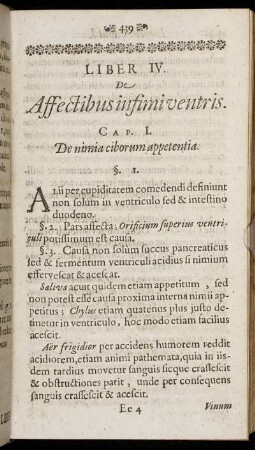 439
LIBER IV.
De
Affectibus infimi ventris.
CAP. I.
De nimia ciborum appetentia.
§. 1.
Alii per cupiditatem comedendi definiunt
non solum in ventriculo sed & intestino
duodeno.
§. 2. Pars affecta, Orificium superius ventri-
culi potissimum est causa.
§. 3. Causa non solum succus pancreaticus
sed & fermentum ventriculi acidius si nimium
effervescat & acescat.
Saliva acuit quidem etiam appetitum, sed
non potest esse causa proxima interna nimii ap-
petitus; Chylus etiam quatenus plus justo de-
tinetur in ventriculo, hoc modo etiam facilius
acescit.
Aër frigidior per accidens humorem reddit
acidiorem, etiam animi pathemata, quia in iis-
dem tardius movetur sanguis sicque crassescit
& obstructiones parit, unde per consequens
sanguis crassescit & acescit.
Ee 4
Vinum